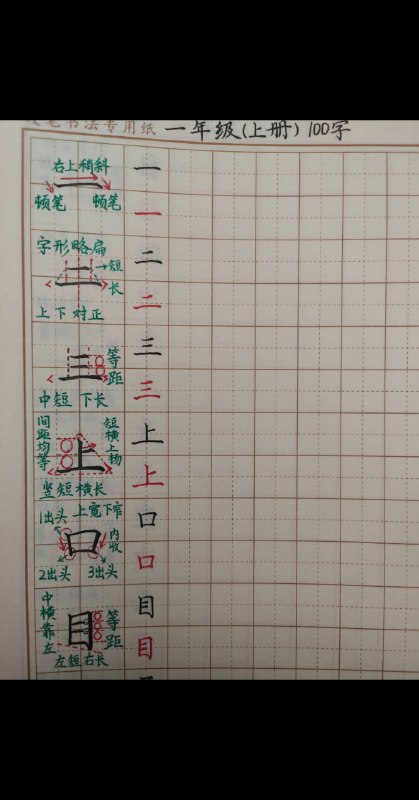 笔书法专用纸 一年级(上册) 100字
右上稍斜
顿笔 顿笔
一
一
字形略扁
二 短
长
上下对正
二
二
三 等距
中短 下长
三
三
间距均等
上
短横上
竖短横长
上
上
1出头 上宽下窄
口 内收
2出头 3出头
口
口
中横靠左
目 等距
左短右长
目
目